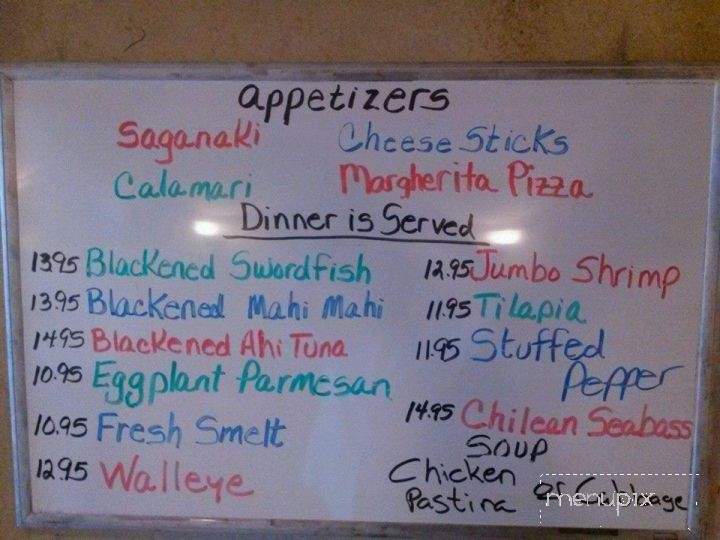 appetizers
Saganaki Cheese Sticks
Calamari Margherita Pizza
Dinner is Served
1395 Blackened Swordfish
1395 Blackened Mahi Mahi
1495 Blackened Ahi Tuna
10.95 Eggplant Parmesan
10.95 Fresh Smelt
1295 Walleye
12.95 Jumbo Shrimp
11.95 Tilapia
11.95 Stuffed
Pepper
14.95 Chilean Seabass
Soup
Chicken
Pastina or Cabbage
menupix